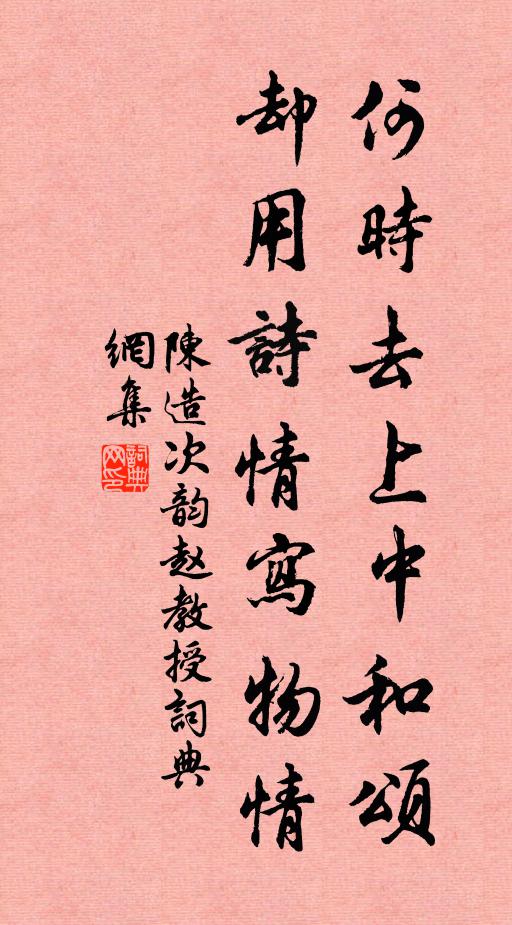 何時去上中和頌
却用詩情寫物情
陳造次韵赵教授詞典
網集
詞典网印